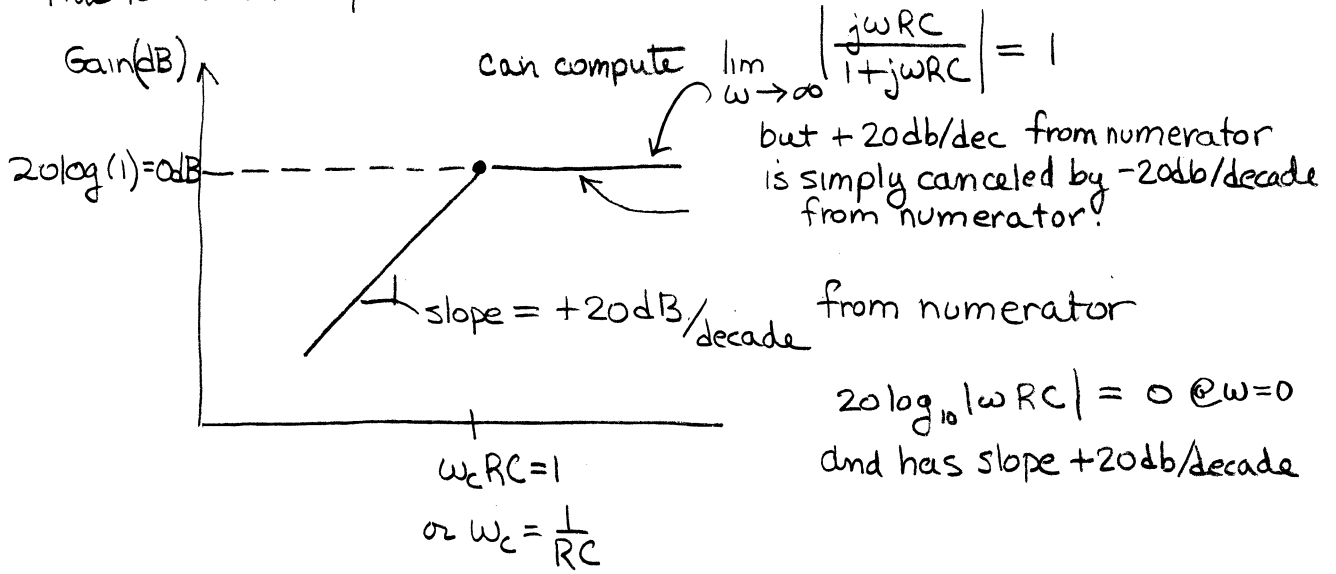 Gain(dB)
can compute lim ω→∞ |jωRC / 1+jωRC| = 1
but +20db/dec from numerator
20log(1)=0dB
is simply canceled by -20db/decade
from numerator!
slope = +20dB/decade
from numerator
20log₁₀|ωRC| = 0 @ω=0
and has slope +20db/decade
ω_cRC=1
or ω_c = 1/RC